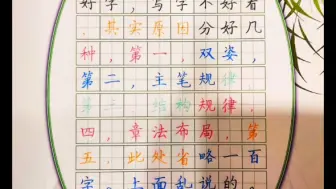 好字，写字不好看
．其实原因分好几
种，第一，双姿，
第二，主笔规律
第三．结构规律．
四，章法布局．第
五．此处省略一百
字。上面乱说的。